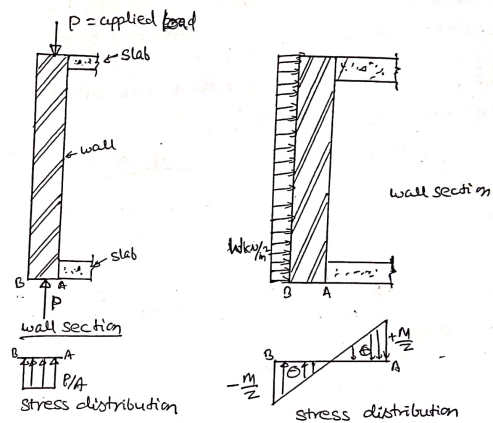 P = applied load
slab
wall
slab
B A
P
wall section
B A
P/A
stress distribution
wall section
W kN/m²
B A
+M/Z
B ⊖ ⊕ A
-M/Z
stress distribution